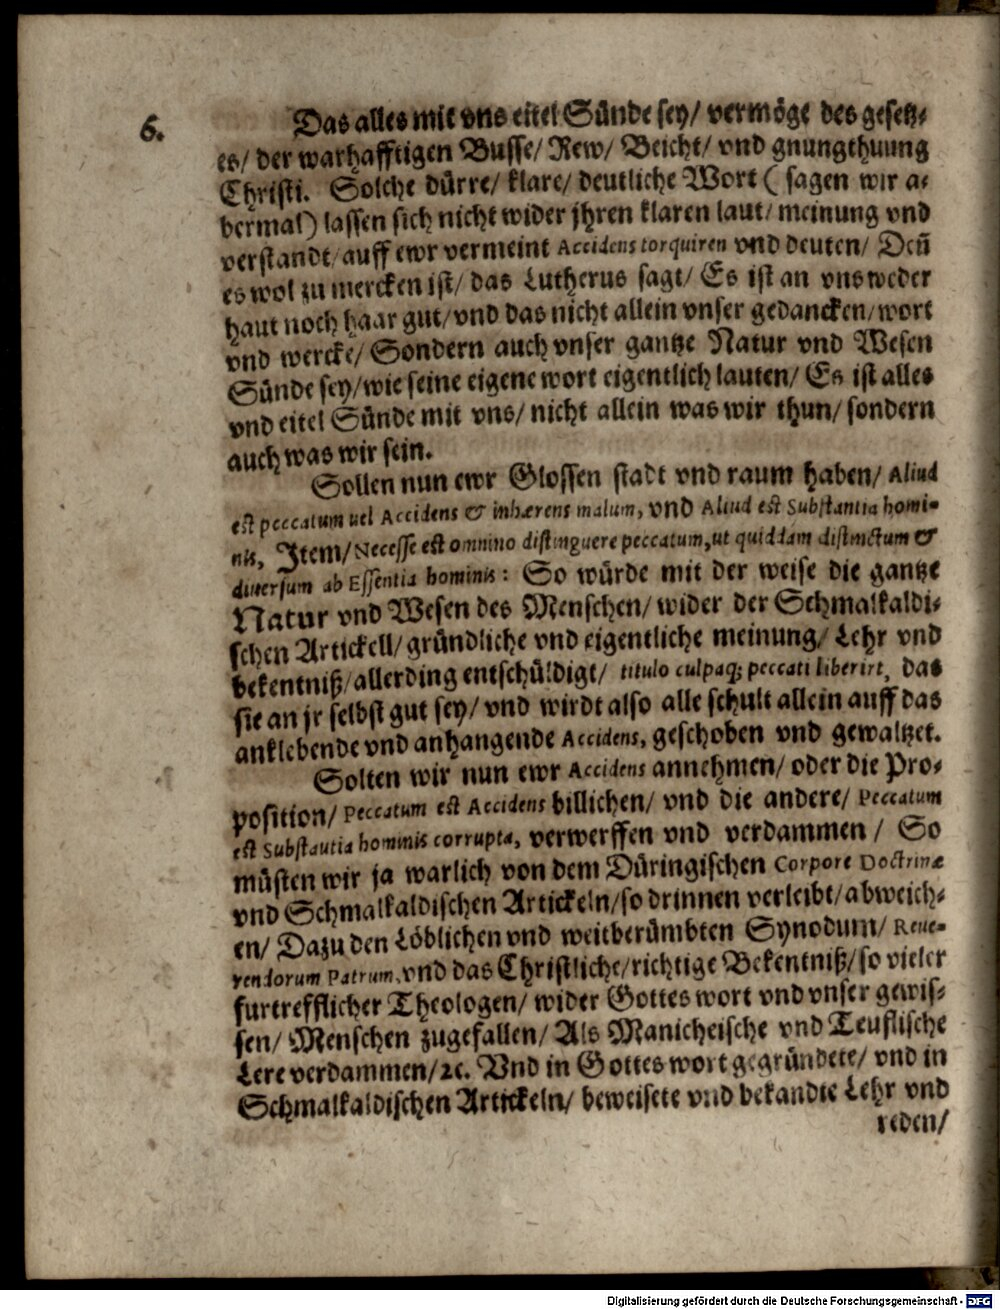 6.
Das alles mit vns eitel Sünde sey/ vermöge des gesetz-
es/ der warhafftigen Busse/ Rew/ Beicht/ vnd gnungthuung
Christi. Solche dürre/ klare/ deutliche Wort ( sagen wir a-
bermal) lassen sich nicht wider jhren klaren laut/ meinung vnd
verstandt/ auff ewr vermeint Accidens torquiren vnd deuten/ Deñ
es wol zu mercken ist/ das Lutherus sagt/ Es ist an vns weder
haut noch haar gut/ vnd das nicht allein vnser gedancken/ wort
vnd wercke/ Sondern auch vnser gantze Natur vnd Wesen
Sünde sey/ wie seine eigene wort eigentlich lauten/ Es ist alles
vnd eitel Sünde mit vns/ nicht allein was wir thun/ sondern
auch was wir sein.
Sollen nun ewr Glossen stadt vnd raum haben/ Aliud
est peccatum uel Accidens & inhærens malum, vnd Aliud est Substantia homi-
nis, Jtem/ Necesse est omnino distinguere peccatum, ut quiddam distinctum &
diuersum ab Essentia hominis: So würde mit der weise die gantze
Natur vnd Wesen des Menschen/ wider der Schmalkaldi-
schen Artickell/ gründliche vnd eigentliche meinung/ Lehr vnd
bekentniß/ allerding entschüldigt/ titulo culpaq; peccati liberirt, das
sie an jr selbst gut sey/ vnd wirdt also alle schult allein auff das
anklebende vnd anhangende Accidens, geschoben vnd gewaltzet.
Solten wir nun ewr Accidens annehmen/ oder die Pro-
position/ Peccatum est Accidens billichen/ vnd die andere/ Peccatum
est Substautia hominis corrupta, verwerffen vnd verdammen / So
müsten wir ja warlich von dem Düringischen Corpore Doctrinæ
vnd Schmalkaldischen Artickeln/ so drinnen verleibt/ abweich-
en/ Dazu den Löblichen vnd weitberümbten Synodum/ Reue-
rendorum Patrum, vnd das Christliche/ richtige Bekentniß/ so vieler
furtrefflicher Theologen/ wider Gottes wort vnd vnser gewis-
sen/ Menschen zugefallen/ Als Manicheische vnd Teuflische
Lere verdammen/ ꝛc. Vnd in Gottes wort gegründete/ vnd in
Schmalkaldischen Artickeln/ beweisete vnd bekandte Lehr vnd
reden/
Digitalisierung gefördert durch die Deutsche Forschungsgemeinschaft - DFG